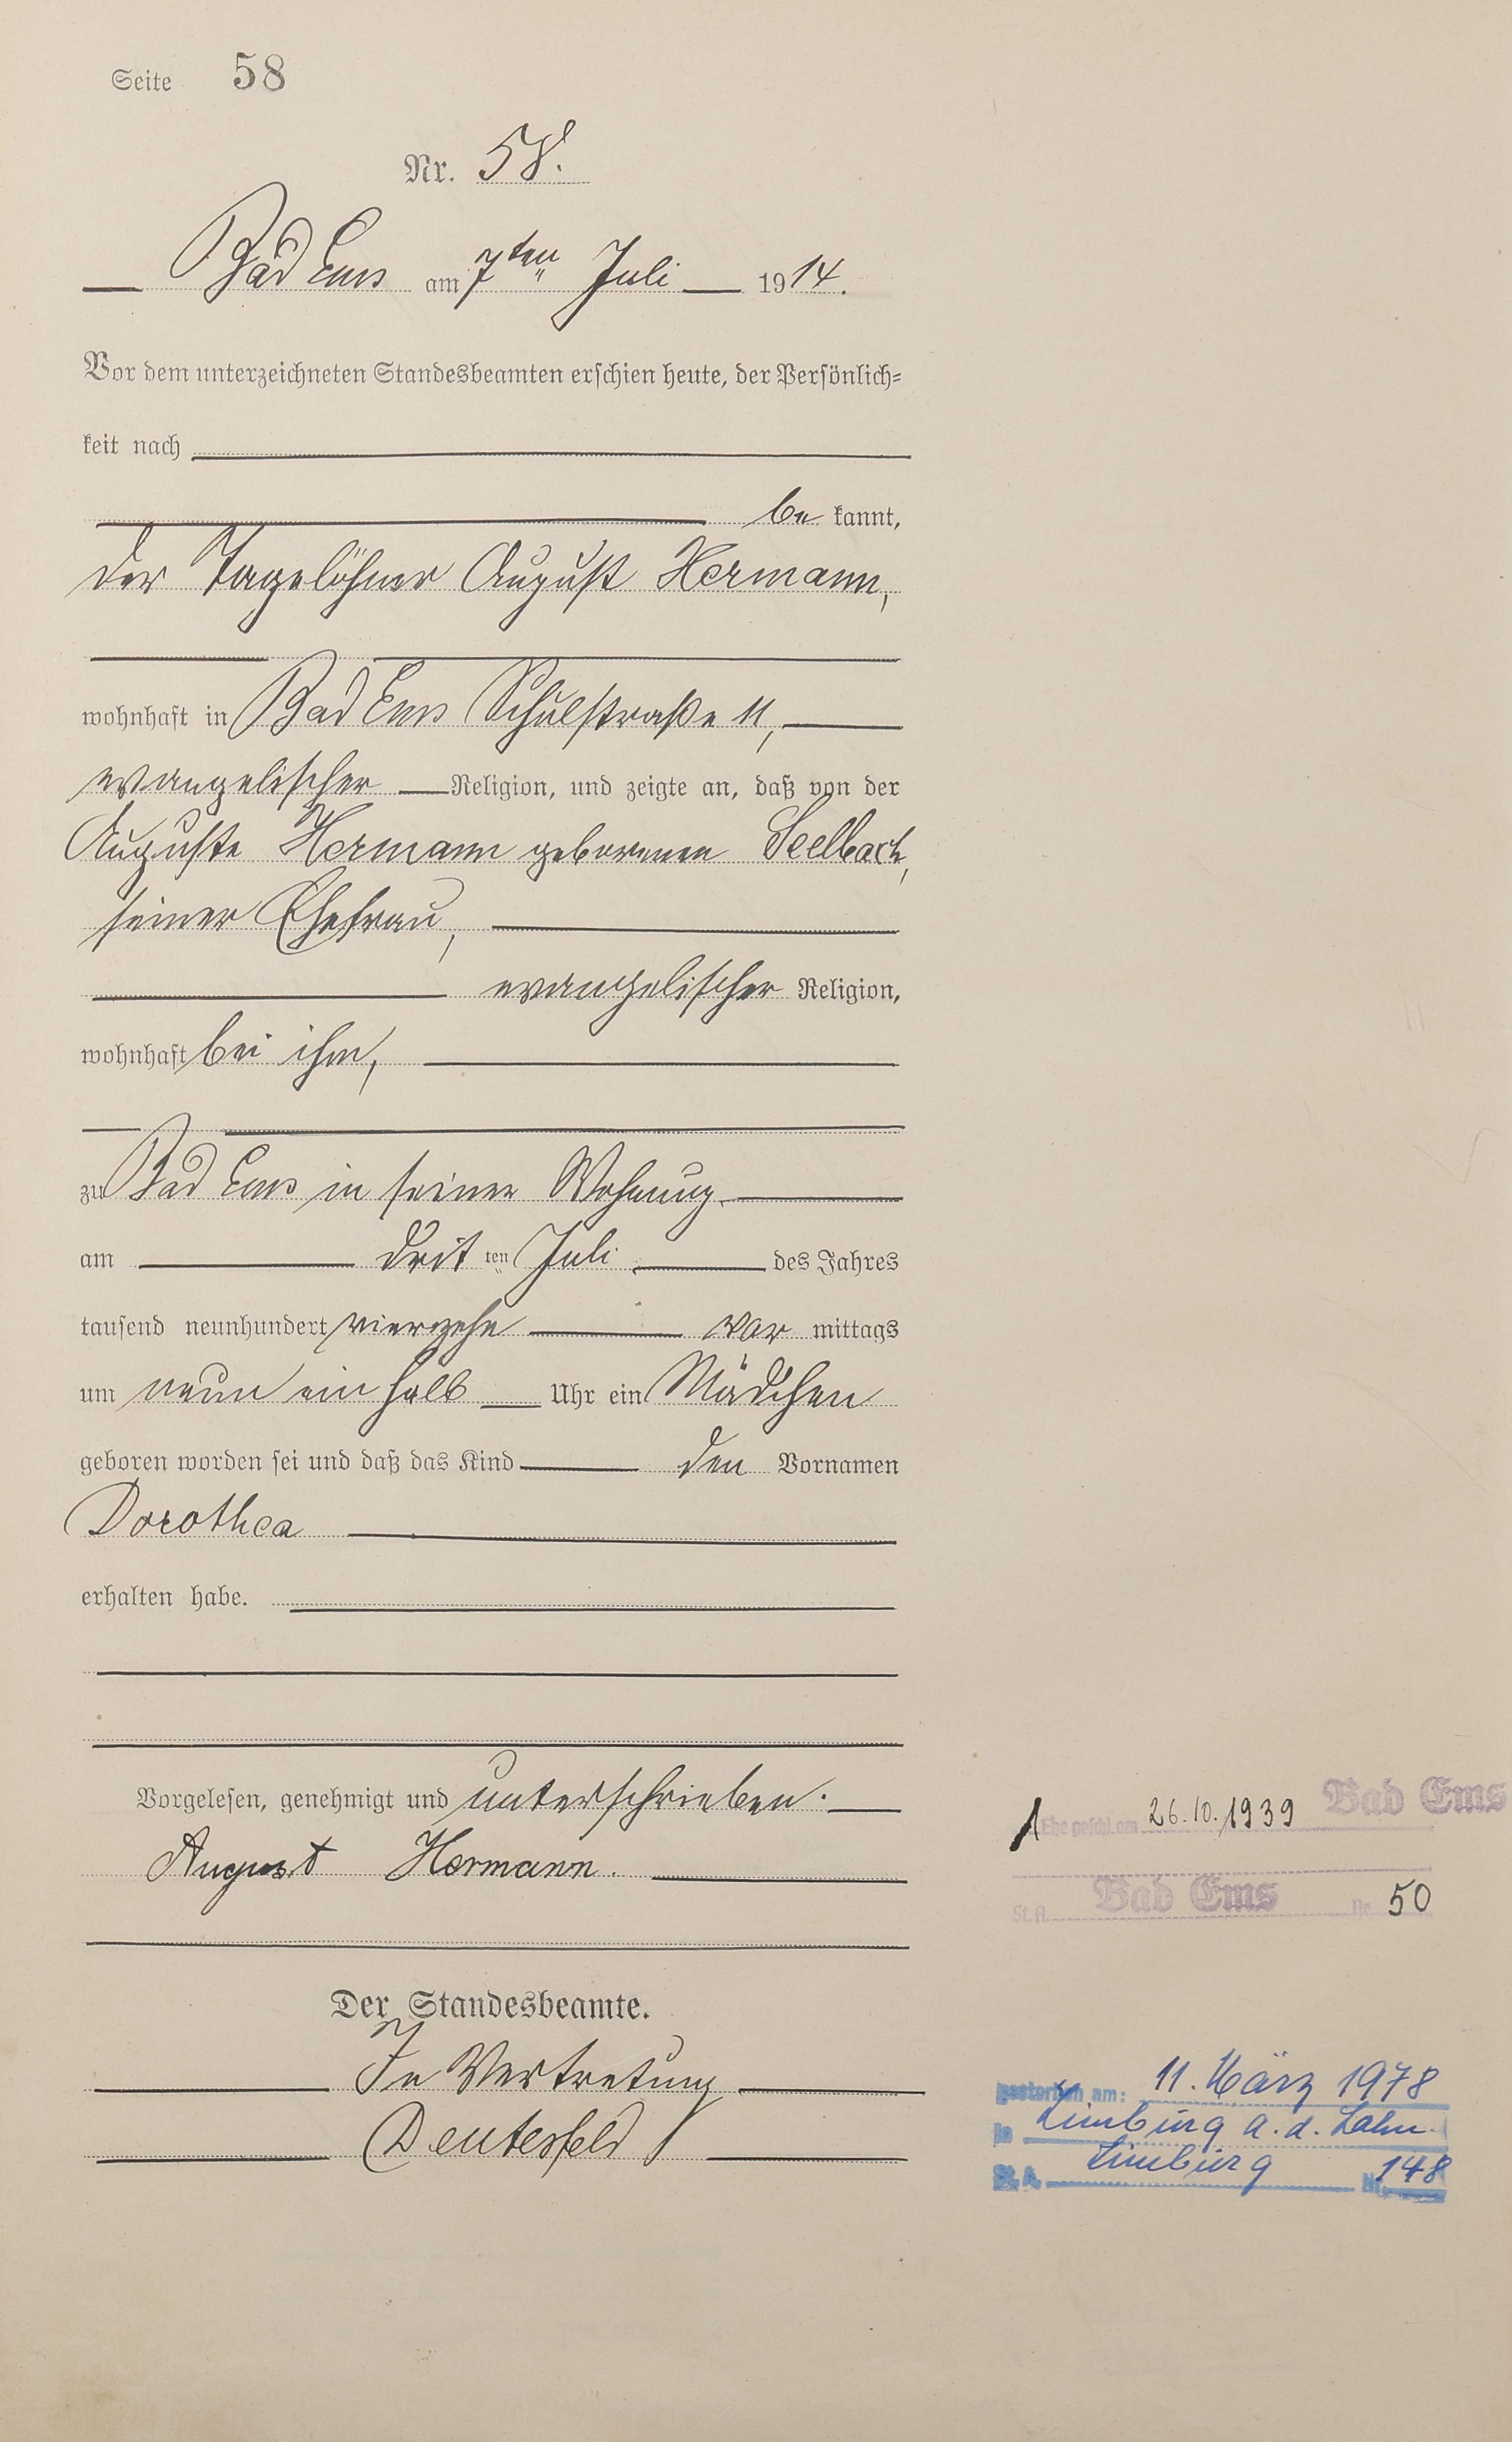 Seite 58
Nr. 58.
Bad Ems am 7ten Juli 1914.
Vor dem unterzeichneten Standesbeamten erschien heute, der Persönlich=
keit nach
be kannt,
der Tagelöhner August Hermann,
wohnhaft in Bad Ems Schulstraße 11,
evangelischer Religion, und zeigte an, daß von der
Auguste Hermann geborenen Seelbach,
seiner Ehefrau,
evangelischer Religion,
wohnhaft bei ihm,
zu Bad Ems in seiner Wohnung
am drit ten Juli des Jahres
tausend neunhundert vierzehn vor mittags
um neun ein halb Uhr ein Mädchen
geboren worden sei und daß das Kind den Vornamen
Dorothea
erhalten habe.
Vorgelesen, genehmigt und unterschrieben.
August Hermann.
Der Standesbeamte.
In Vertretung
Deutesfeld
1 Ehe geschl. am 26.10.1939 Bad Ems
St. A. Bad Ems Nr. 50
gestorben am: 11. März 1978
in Limburg a. d. Lahn
St. A. Limburg Nr. 148